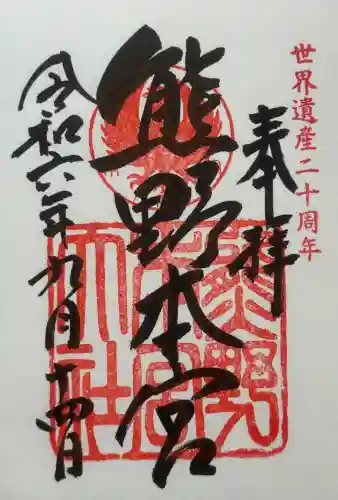 世界遺産二十周年
奉拝
熊野本宮
令和六年九月十四日
熊野
本宮
大社